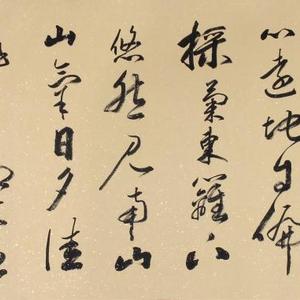 心遠地自偏
採菊東籬下
悠然見南山
山氣日夕佳